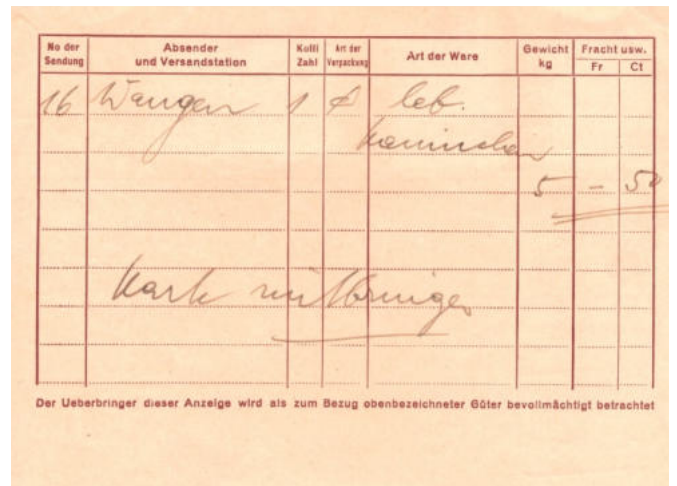 No der Sendung Absender und Versandstation Kolli Zahl Art der Verpackung Art der Ware Gewicht kg Fracht usw. Fr Ct
16 Wangen 1 leb.
Kaninchen
5 - 50
Karte mitbringen
Der Ueberbringer dieser Anzeige wird als zum Bezug obenbezeichneter Güter bevollmächtigt betrachtet